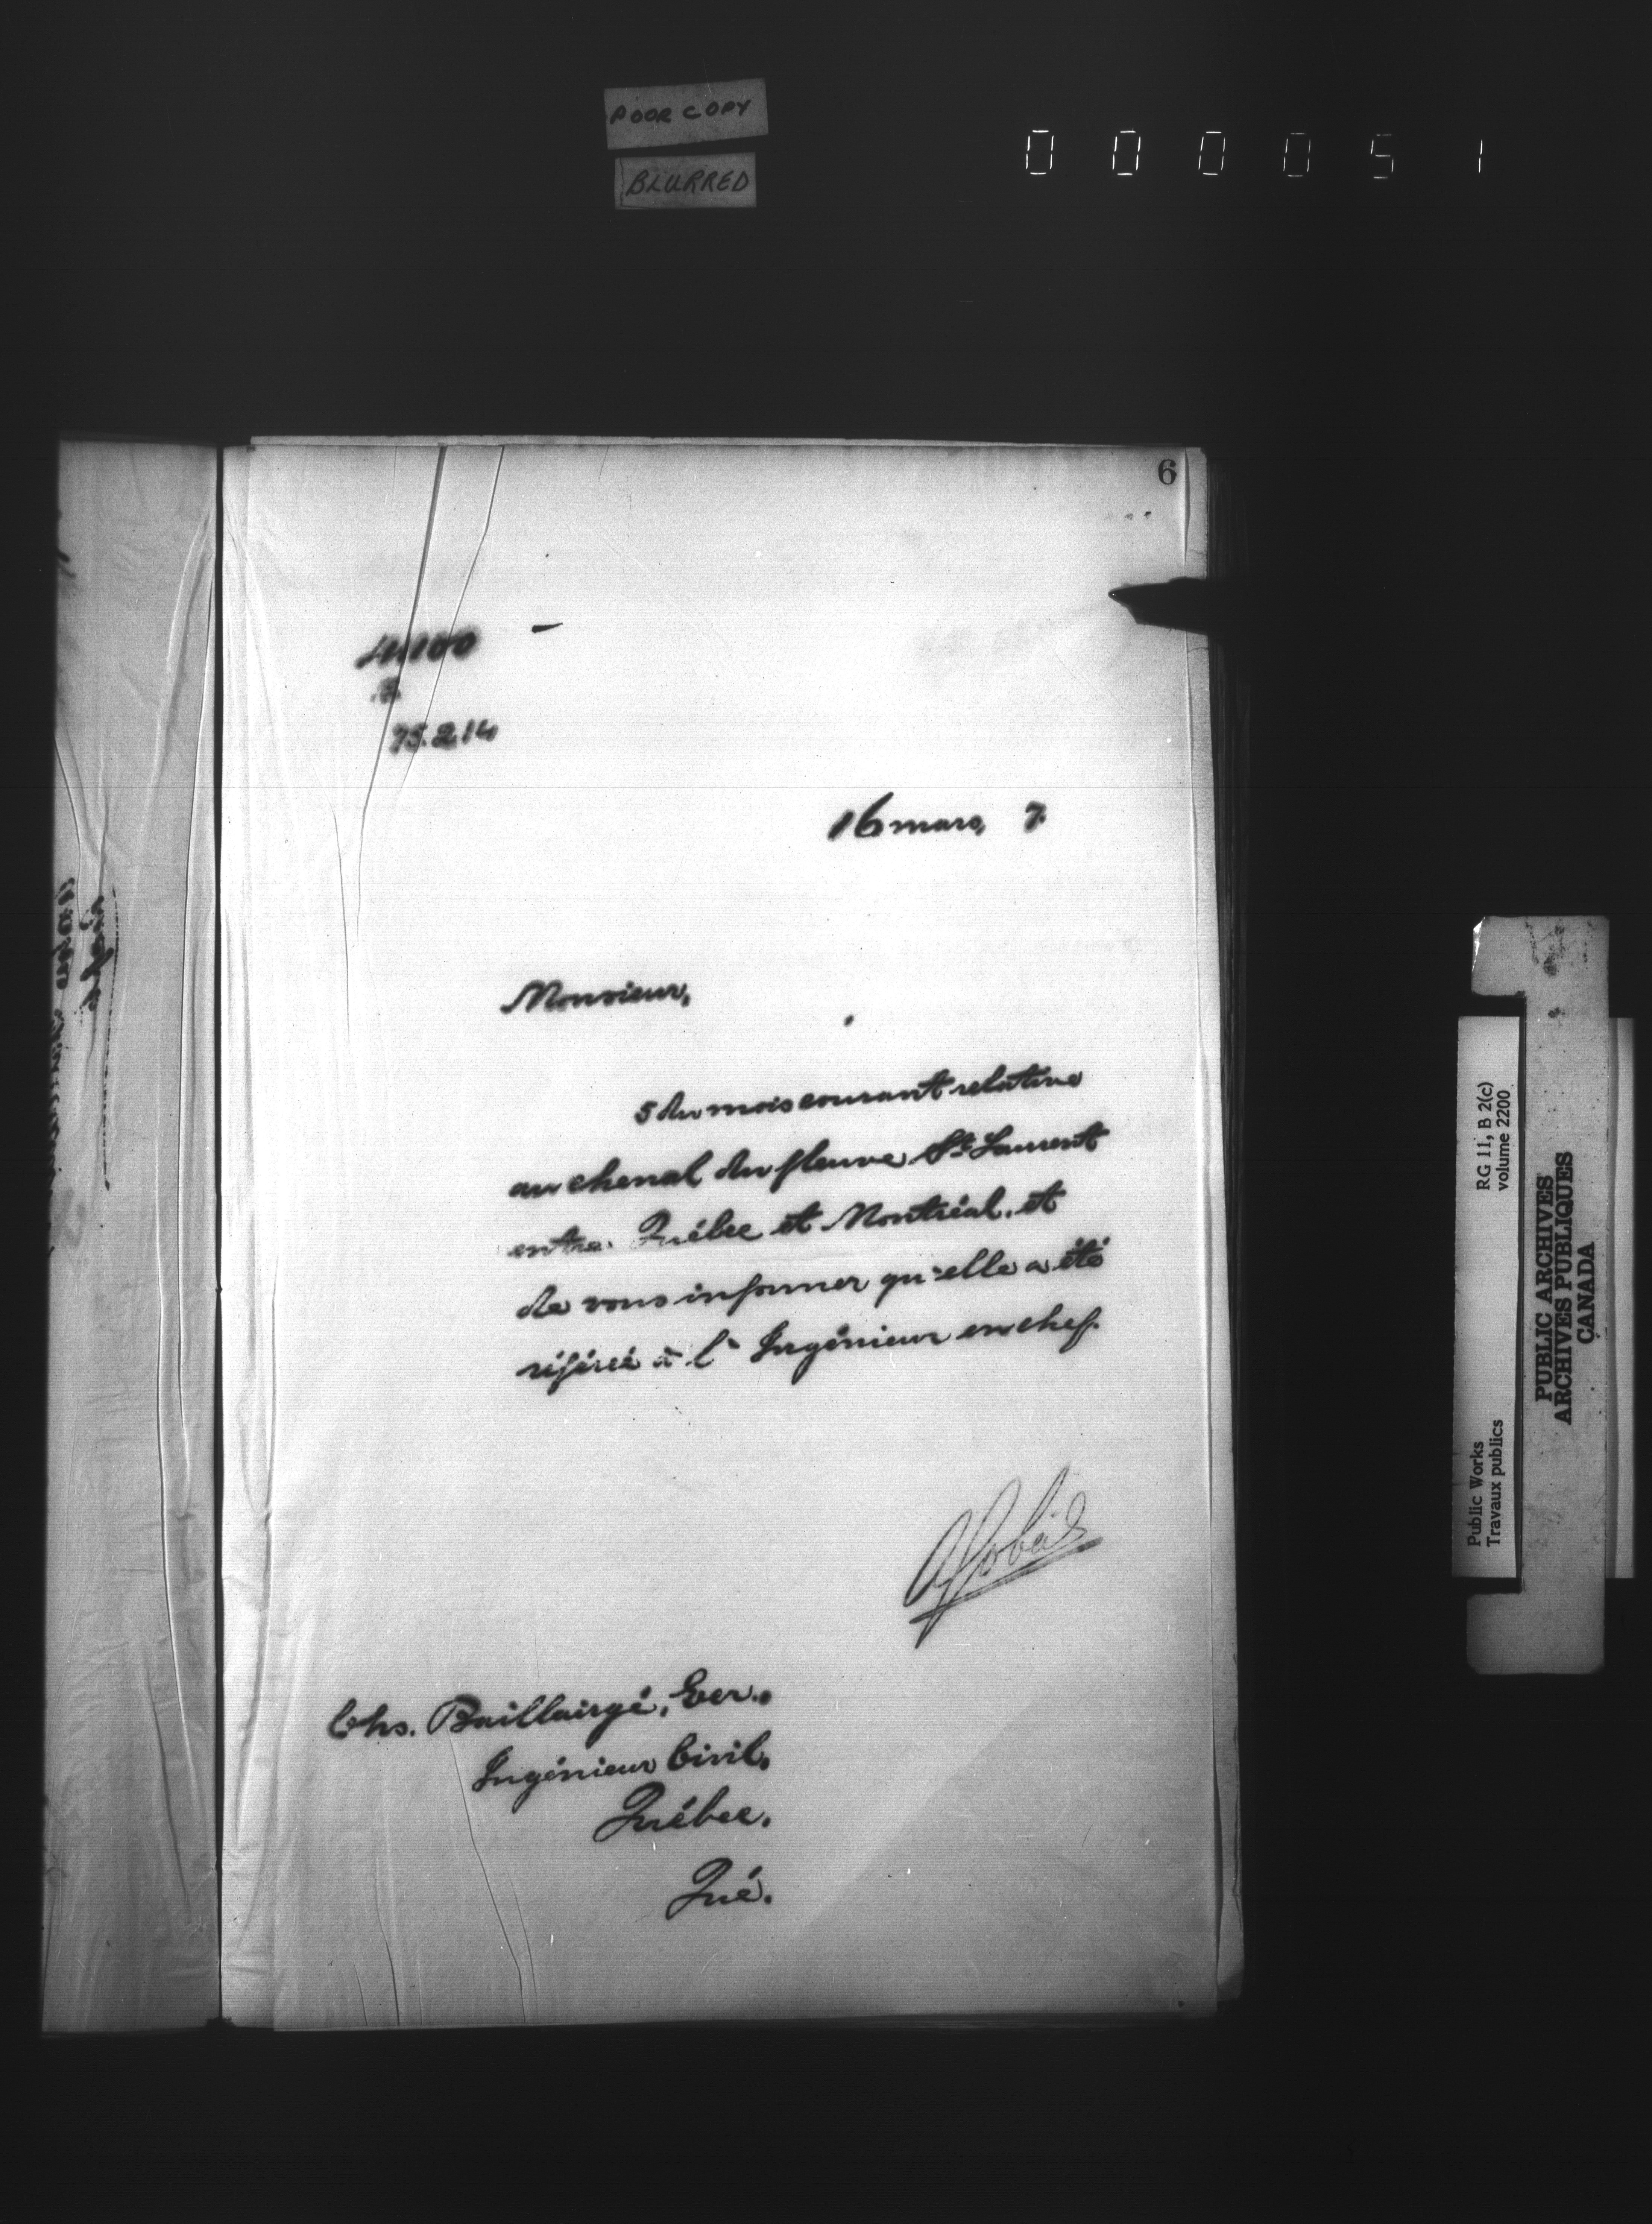 POOR COPY
BLURRED
000051
6
75.214
16 mars, 7.
Monsieur,
5 du mois courant relative
au chenal du fleuve St. Laurent
entre Québec et Montréal, et
de vous informer qu'elle a été
référée à l'Ingénieur en chef.
AGobeil
Chs. Baillairgé, Ecr.,
Ingénieur Civil,
Québec.
Qué.
Public Works
Travaux publics
RG 11, B 2(c)
volume 2200
PUBLIC ARCHIVES
ARCHIVES PUBLIQUES
CANADA